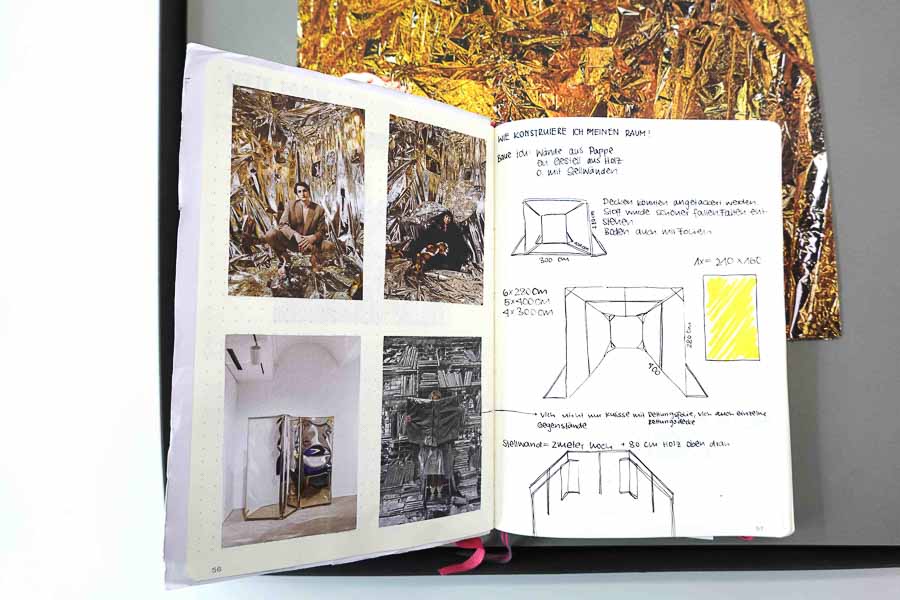 WIE KONSTRUIERE ICH MEINEN RAUM?
Baue ich: Wände aus Pappe
Ein Gestell aus Holz
O. mit Stellwänden
Decken könnten angetackert werden
Stoff würde schöner fallen Falten ent-
stehen
Boden auch mit
300 cm
1x = 210 x 160
6x280cm
5x400cm
4x300cm
280 cm
400
nicht nur Kulisse mit Rettungsfolie, auch einzelne
Gegenstände
Rettungsdecke
Stellwand = 2 Meter hoch + 80 cm Holz oben dran
56
57